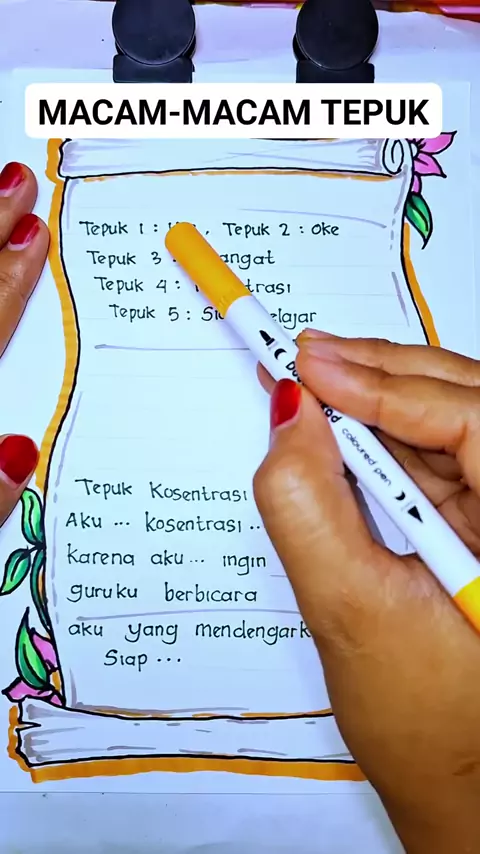 MACAM-MACAM TEPUK
Tepuk 1 : , Tepuk 2 : Oke
Tepuk 3 : angat
Tepuk 4 : trasi
Tepuk 5 : Sia elajar
Tepuk Kosentrasi
Aku ... kosentrasi ..
karena aku ... ingin
guruku berbicara
aku yang mendengark
Siap ...
coloured pen